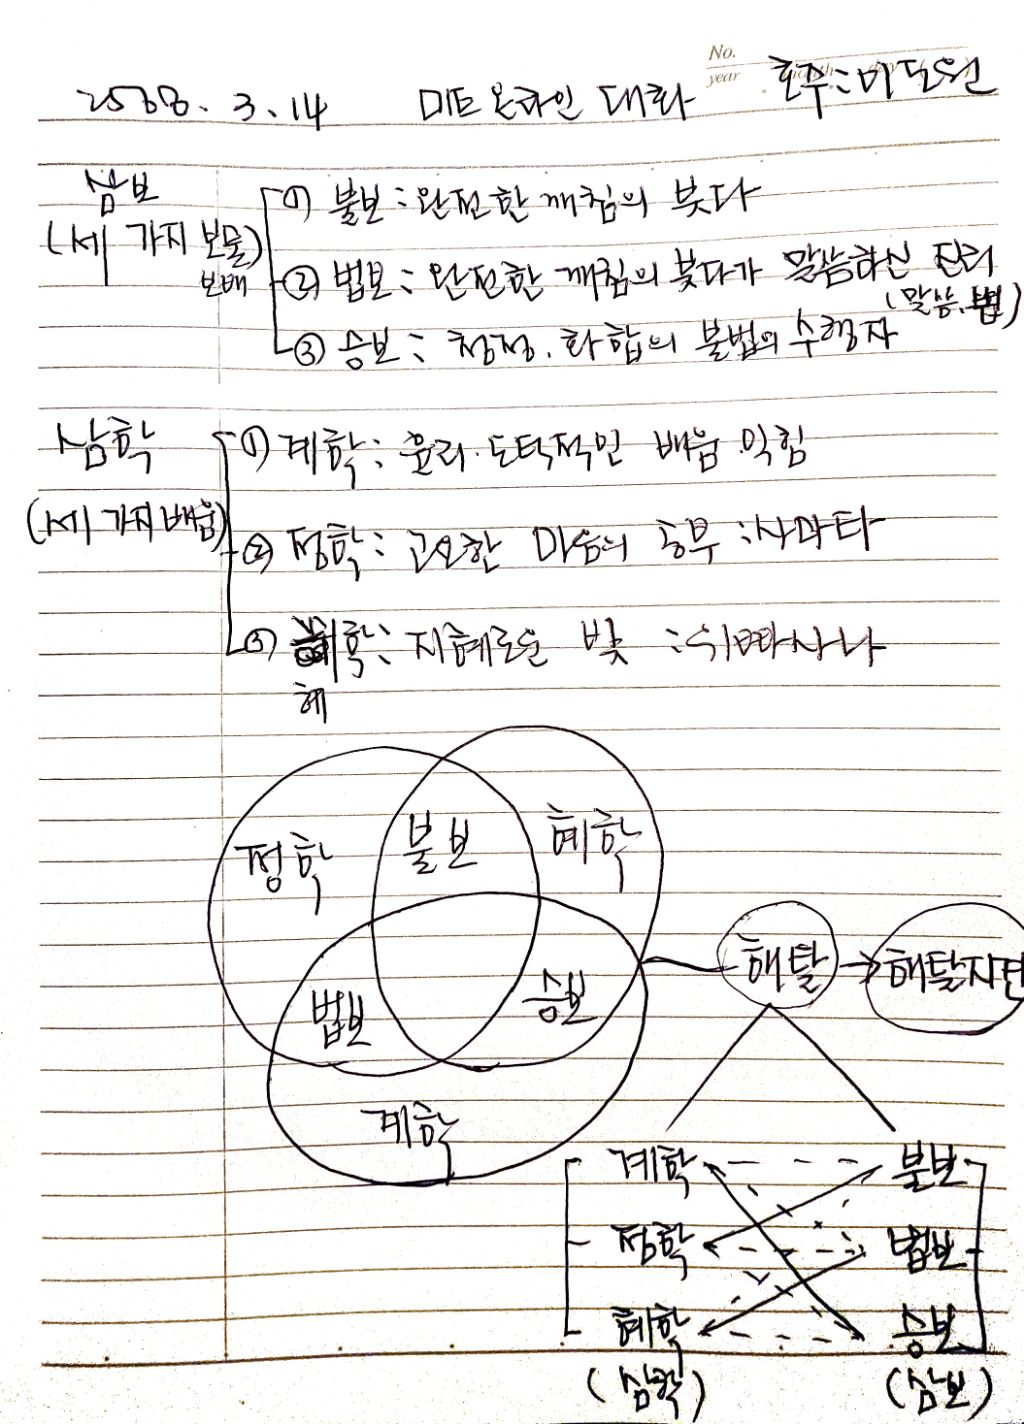 No.
year month
2568. 3. 14 미트 온라인 대화 호주:미도원
삼보
(세 가지 보물)
보배
① 불보: 완전한 깨침의 붓다
② 법보: 완전한 깨침의 붓다가 말씀하신 진리
(말씀.법)
③ 승보: 청정.화합의 불법의 수행자
삼학
(세 가지 배움)
① 계학: 윤리.도덕적인 배움.익힘
② 정학: 고요한 마음의 공부 :사마타
③ 혜학: 지혜로운 빛 :위빠사나
혜
정학 불보 혜학
법보 승보
계학
해탈 → 해탈지견
계학 불보
정학 법보
혜학 승보
(삼학) (삼보)